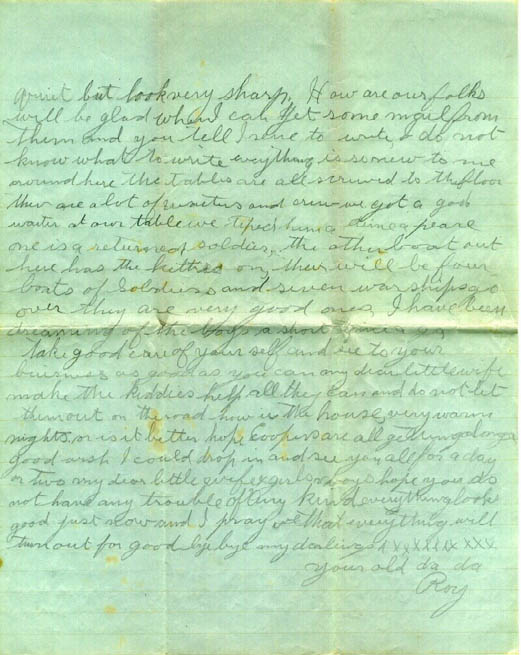 quiet but look very sharp. How are our folks
will be glad when I can get some mail from
them and you tell Irene to write, I do not
know what to write everything is so new to me
around here the tables are all screwed to the floor
there are a lot of waiters and crew we got a good
waiter at our table we tiped him a apeace
one is a returned soldier, the other boat out
here has the kilties on, there will be four
boats of Soldiers and seven war ships go
over they are very good ones, I have been
dreaming of the boys a short
take good care of your self and see to your
business as good as you can my dear little wife
make the kiddies help all they can and do not let
them out on the road how is the house very warm
nights, or is it better hope Coopers are all getting along
good wish I could drop in and see you all for a day
or two my dear little wife & girl & boys hope you do
not have any trouble of any kind everything looks
good just now and I pray that everything will
turn out for good bye bye my darlings x x x x x x x x x x
your old da da
Roy